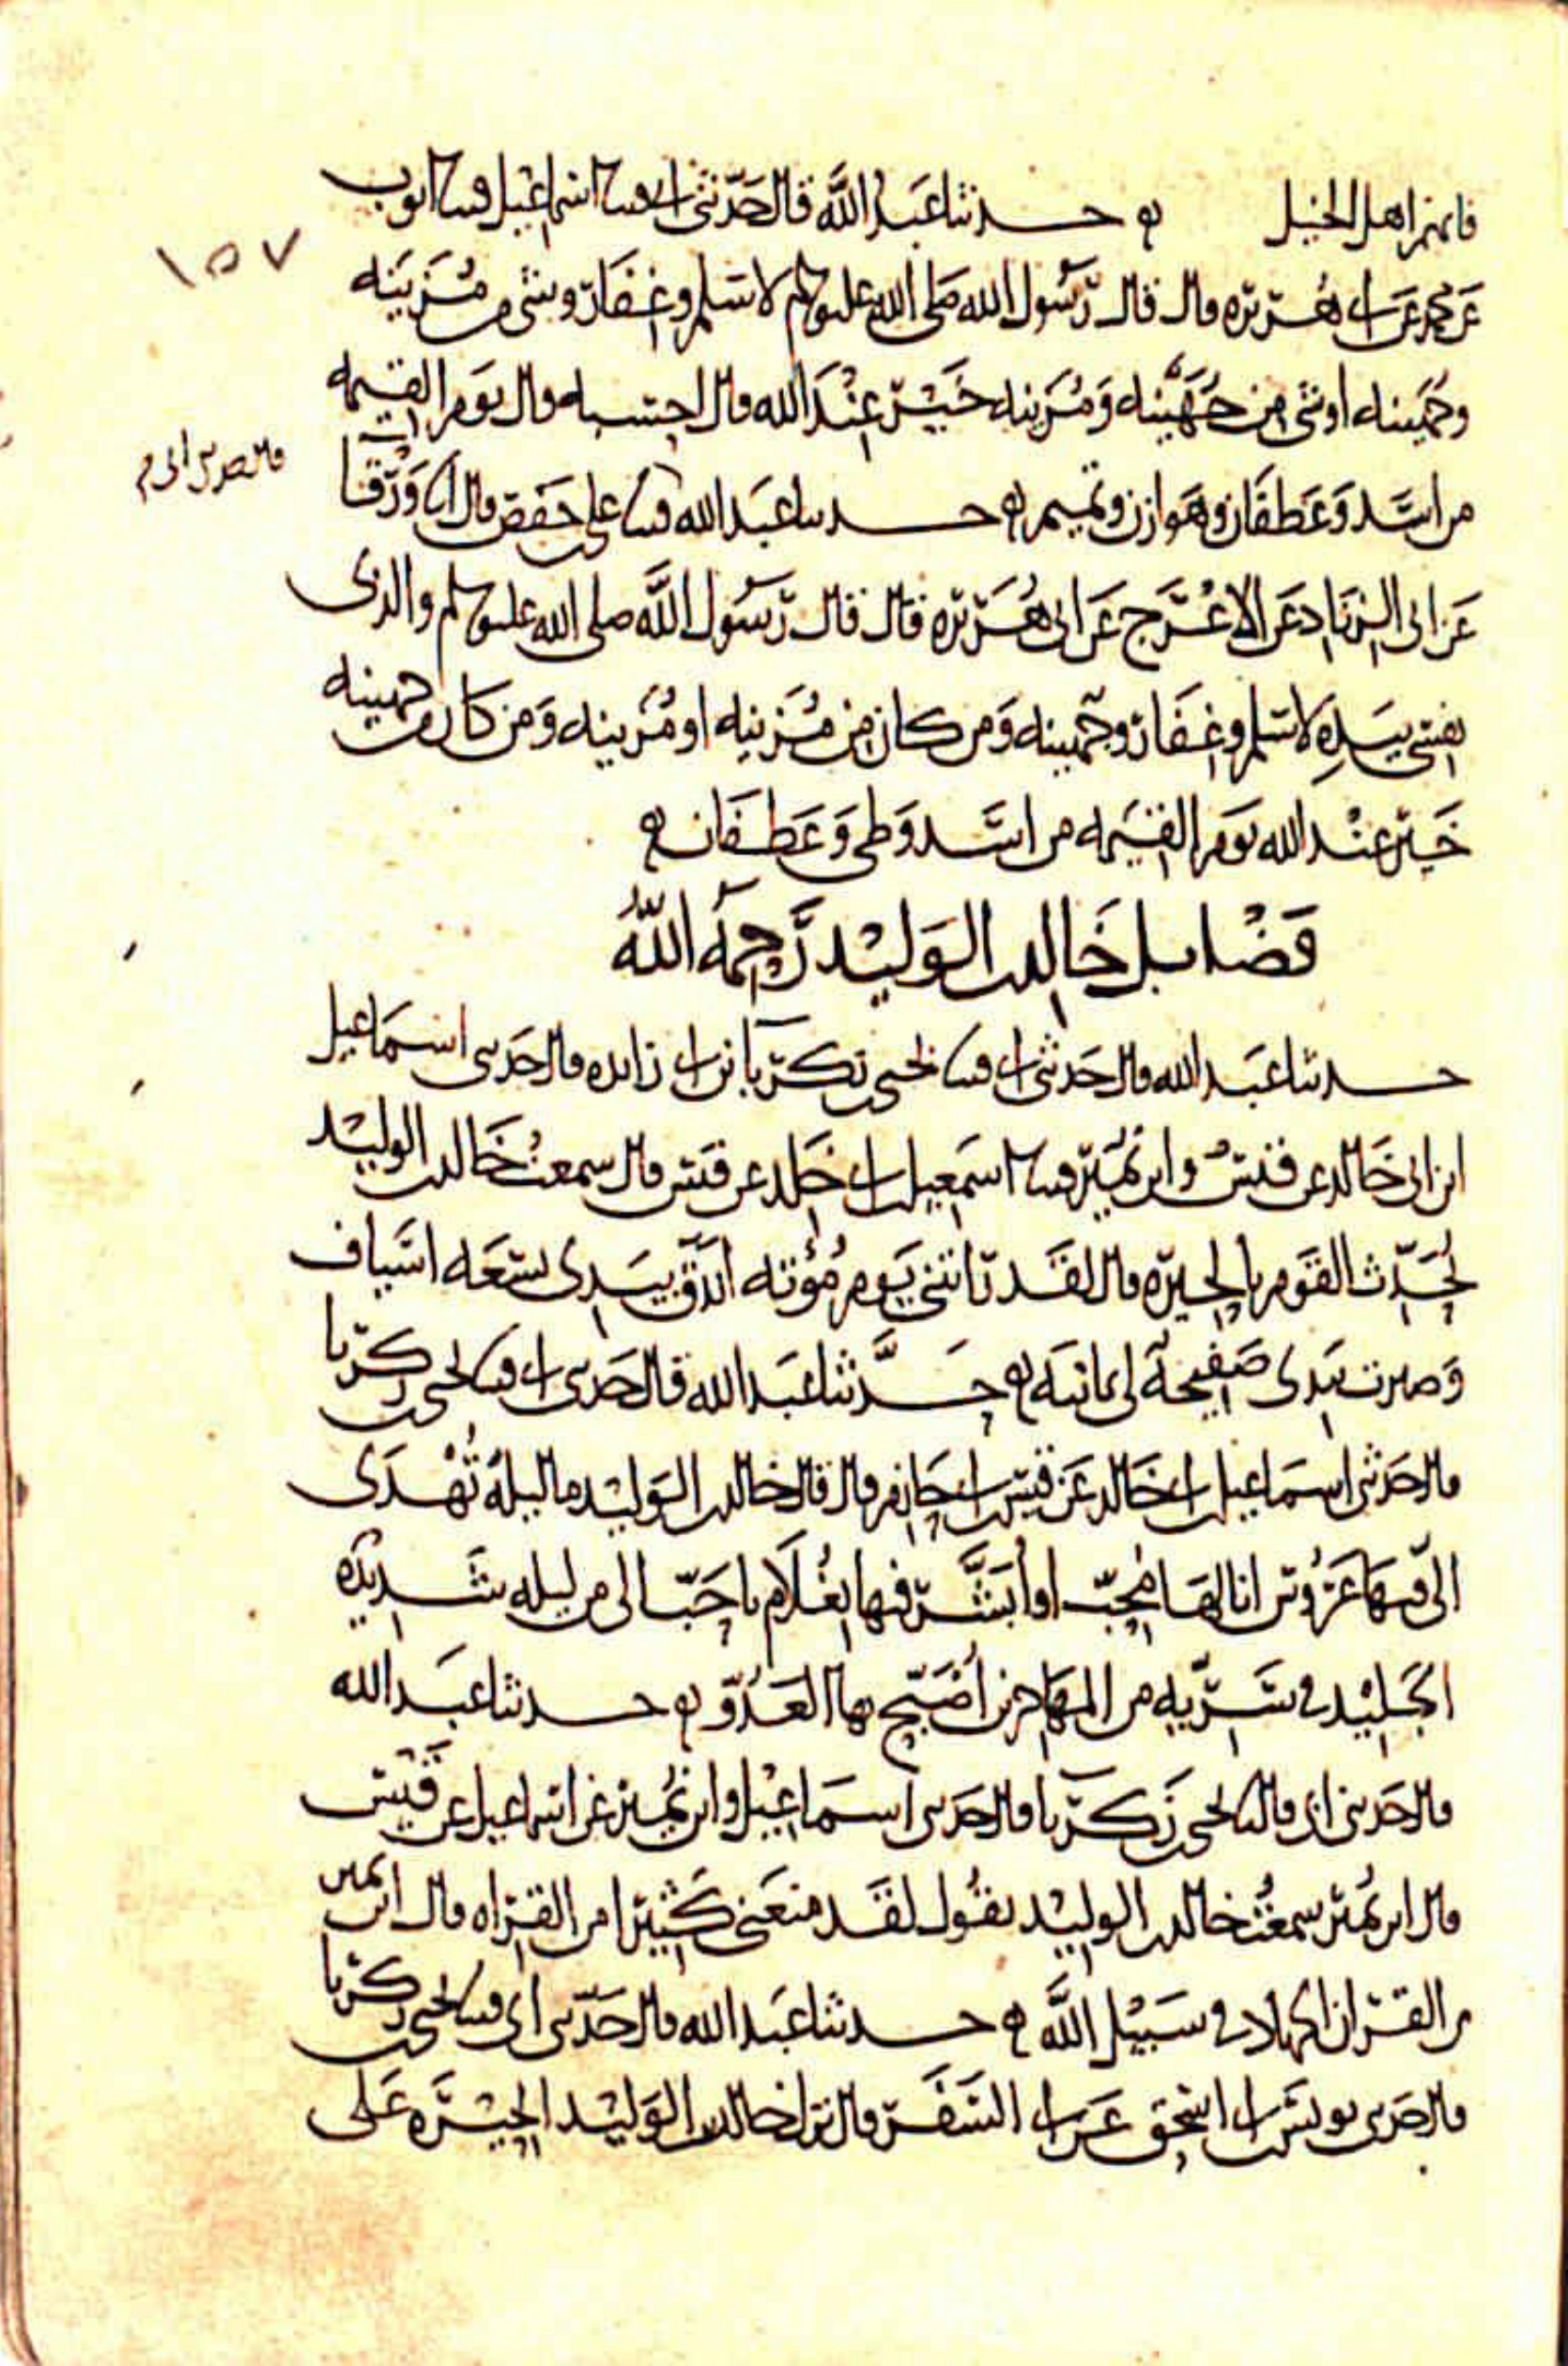 فانهم اهل الخيل حدثنا عبد الله قال حدثني ابي قثنا اسماعيل قثنا ايوب
عن محمد عن ابي هريرة قال قال رسول الله صلى الله عليه وسلم لاسلم وغفار وشيء من مزينه
وجهينه او شيء من جهينه ومزينه خير عند الله قال احسبه قال يوم القيمه
من اسد وغطفان وهوازن وتميم حدثنا عبد الله قثنا علي بن حفص قال انا ورقا
عن ابي الزناد عن الاعرج عن ابي هريره قال قال رسول الله صلى الله عليه وسلم والذي
نفسي بيده لاسلم وغفار وجهينه ومن كان من مزينه او مزينه ومن كان من جهينه
خير عند الله يوم القيمه من اسد وطي وغطفان
فضايل خالد بن الوليد رحمه الله
حدثنا عبد الله قال حدثني ابي قثنا يحيى بن زكريا بن ابي زايده قال حدثني اسماعيل
ابن ابي خالد عن قيس وابن نمير قثنا اسمعيل بن ابي خلد عن قيس قال سمعت خالد بن الوليد
يحدث القوم بالحيره قال لقد رايتني يوم مؤته اندق بيدي تسعه اسياف
وصبرت بيدي صفيحة لي يمانيه حدثنا عبد الله قال حدثني ابي قثنا يحيى بن زكريا
قال حدثني اسماعيل بن ابي خالد عن قيس بن ابي حازم قال قال خالد بن الوليد ما ليلة تهدى
الي فيها عروس انا لها محب او ابشر فيها بغلام باحب الي من ليله شديده
الجليد في سريه من المهاجرين اصبح بها العدو حدثنا عبد الله
قال حدثني ابي قال ثنا يحيى بن زكريا قال حدثني اسماعيل وابن نمير عن اسماعيل عن قيس
قال ابن نمير سمعت خالد بن الوليد يقول لقد منعني كثيرا من القراه قال ابن نمير
من القران الجهاد في سبيل الله حدثنا عبد الله قال حدثني ابي قثنا يحيى بن زكريا
قال حدثني يونس بن ابي اسحق عن ابي السفر قال نزل خالد بن الوليد الحيره على
١٥٧